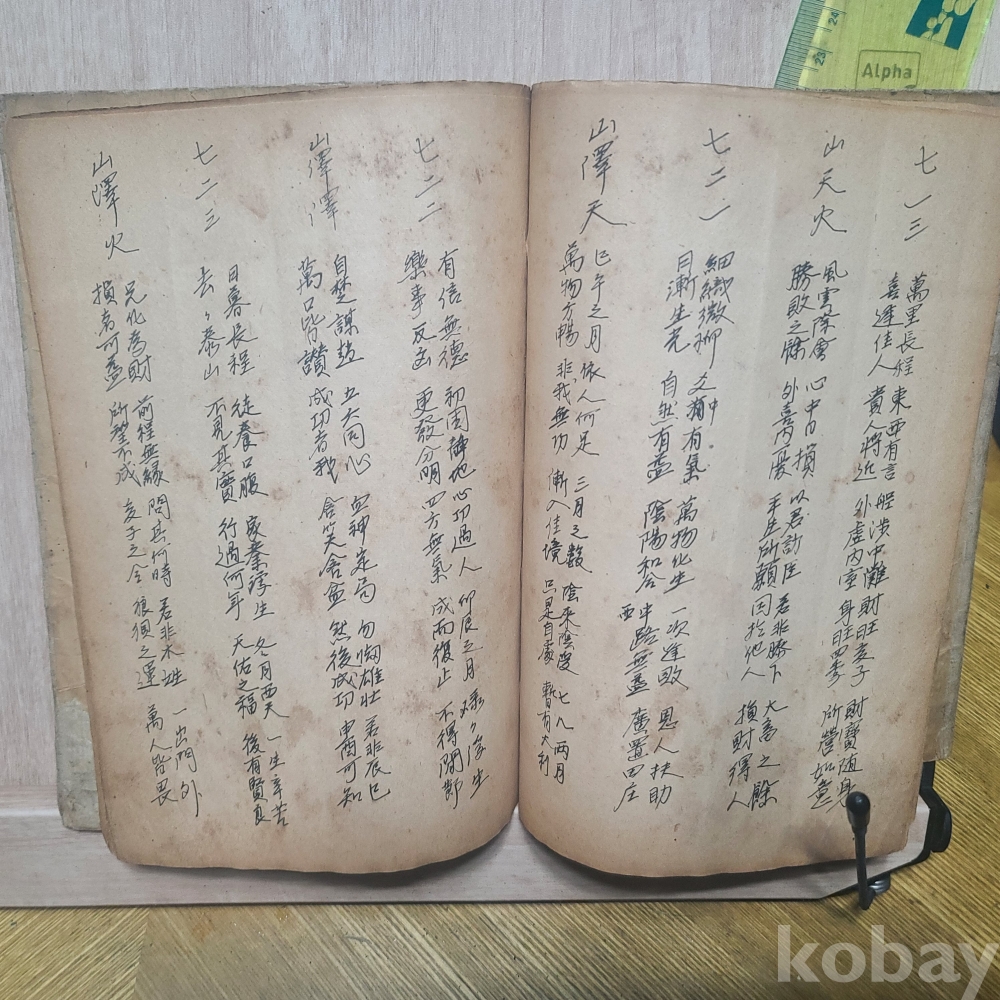 七一三
萬里長程 東西有言 船涉中灘 財旺妻子 財寶随身
喜逢佳人 貴人將近 外虛內室 身旺四季 所營如意
山天火
風雲際會 心中口損 以君訪臣 若非膝下 大富之餘
勝敗之餘 外喜內憂 平生所願 因於他人 損財得人
七二一
細織微柳 之中有氣 萬物化生 一次進敗 恩人扶助
日漸生光 自然有益 陰陽和合 中路無益 廣置田庄
山澤天
巳午之月 依人何足 三月之數 陰來陰變 七八兩月
萬物方暢 非我無功 漸入佳境 只是自家 暫有大利
七二二
有信無德 初困静地 心功過人 卯辰之月 碌々浮生
樂事反凶 更發分明 四方無氣 成而復止 不得閑節
山澤澤
自楚謀趙 立大同心 血神定局 勿悔雄壮 若非辰巳
萬口皆讃 成功者我 含笑含盃 然後成功 申酉可知
七二三
日暮長程 徒養口腹 家業浮生 九月西天 一生辛苦
去々泰山 不見其實 行過何年 天佑之福 後有賢良
山澤火
兄化為財 前程無緣 問其何時 若非木姓 一出門外
損者可益 所望不成 妻子之合 狼狽之運 萬人皆畏
Alpha
23
24
kobay